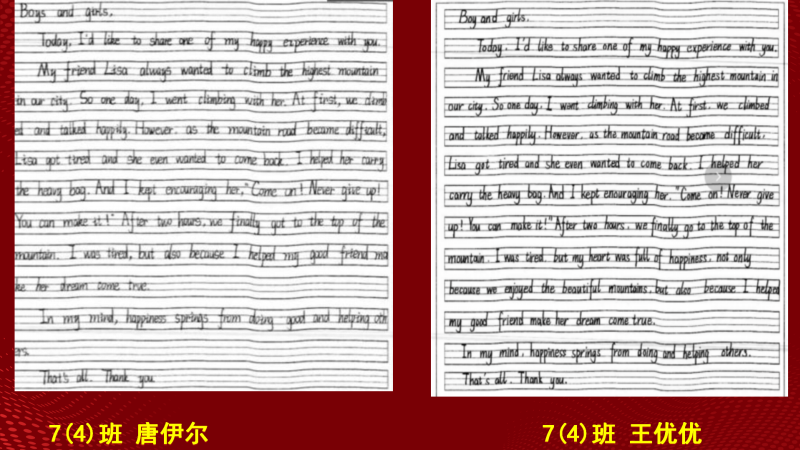 Boys and girls,
Today, I'd like to share one of my happy experience with you.
My friend Lisa always wanted to climb the highest mountain
in our city. So one day, I went climbing with her. At first, we climb
ed and talked happily. However, as the mountain road became difficult,
Lisa got tired and she even wanted to come back. I helped her carry
the heavy bag. And I kept encouraging her, "Come on! Never give up!
You can make it!" After two hours, we finally got to the top of the
mountain. I was tired, but also because I helped my good friend ma
ke her dream come true.
In my mind, happiness springs from doing good and helping oth
ers.
That's all. Thank you.
7(4)班 唐伊尔
Boy and girls.
Today, I'd like to share one of my happy experience with you.
My friend Lisa always wanted to climb the highest mountain in
our city. So one day, I went climbing with her. At first, we climbed
and talked happily. However, as the mountain road became difficult,
Lisa got tired and she even wanted to come back. I helped her
carry the heavy bag. And I kept enouraging her. "Come on! Never give
up! You can make it!" After two hours, we finally go to the top of the
mountain. I was tired, but my heart was full of happiness, not only
because we enjoyed the beautiful mountains, but also because I helped
my good friend make her dream come true.
In my mind, happiness springs from doing and helping others.
That's all. Thank you.
7(4)班 王优优